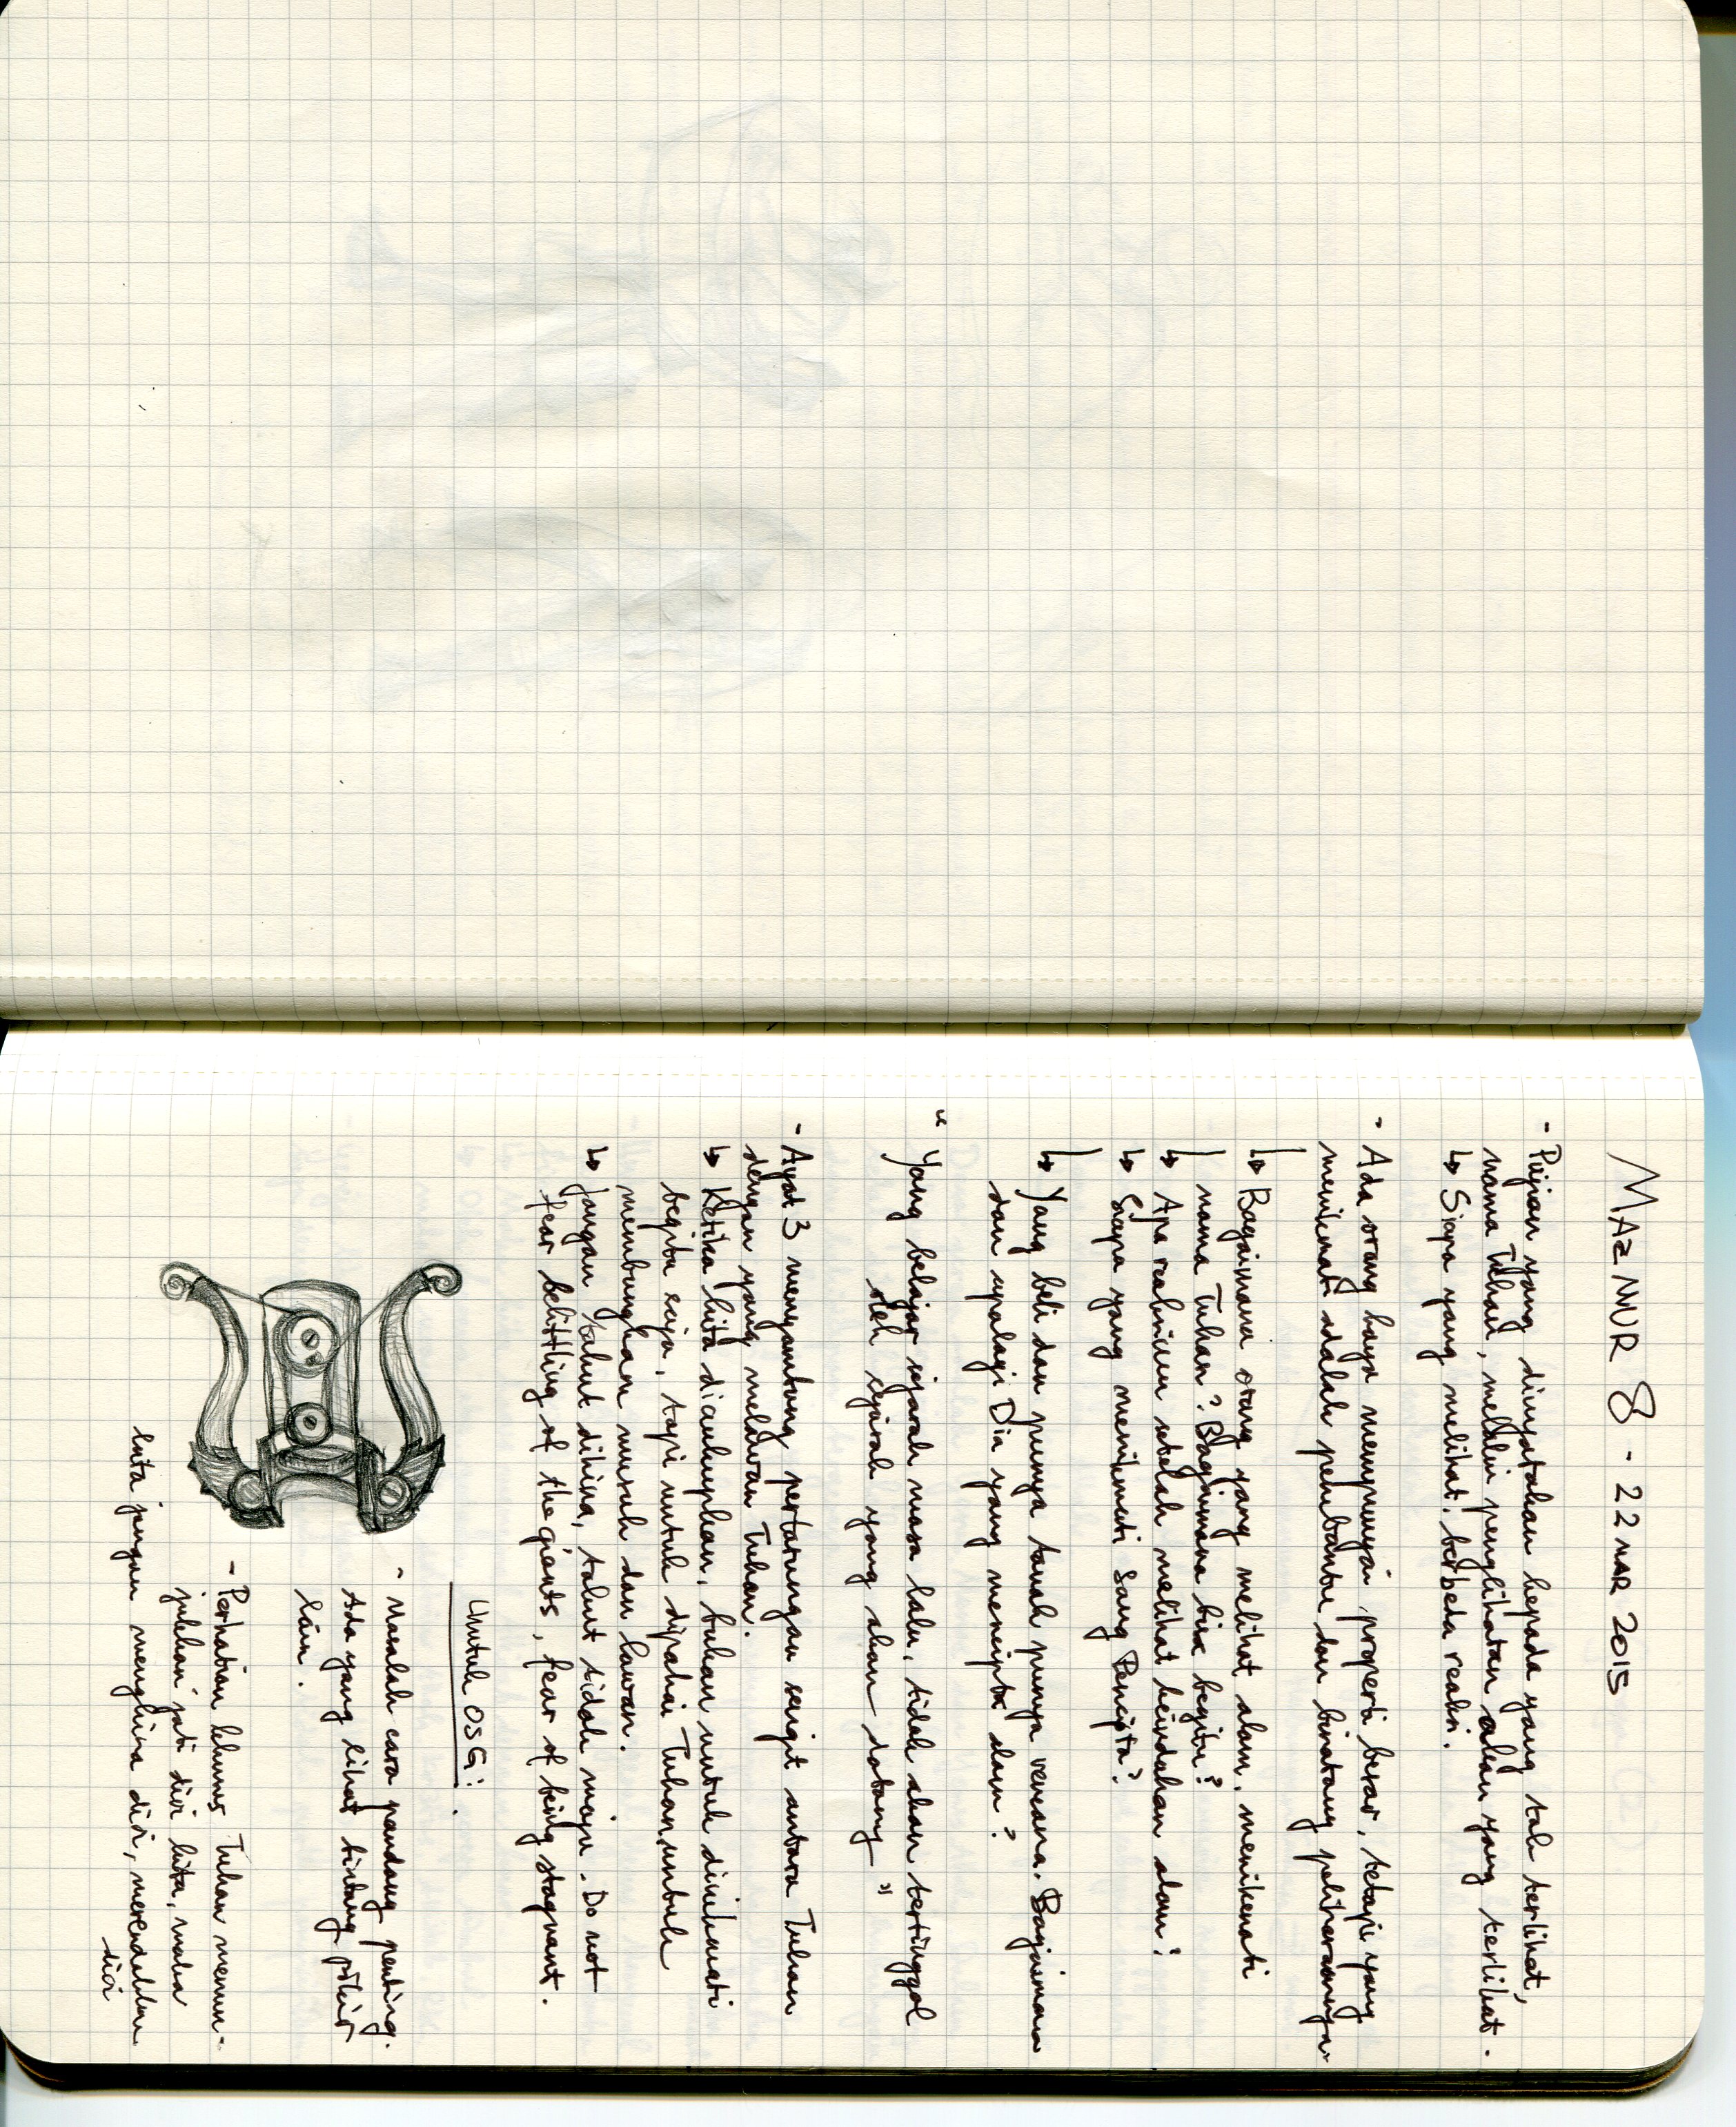 MAZMUR 8 - 22 MAR 2015
- Pujian yang dinyatakan kepada yang tak terlihat,
nama Tuhan, melalui penglihatan akan yang terlihat.
↳ Siapa yang melihat, berbeda reaksi.
- Ada orang kaya mempunyai properti besar, tetapi yang
menikmati adalah pembantu dan binatang peliharaannya
↳ Bagaimana orang yang melihat alam, menikmati
nama Tuhan? Bagaimana bisa begitu?
↳ Apa reaksimu setelah melihat keindahan alam?
↳ Siapa yang menikmati Sang Pencipta?
↳ Yang beli dan punya tanah punya rencana. Bagaimana
dan apalagi Dia yang mencipta alam?
" Yang belajar sejarah masa lalu, tidak akan tertinggal
oleh sejarah yang akan datang "
- Ayat 3 menyambung pertarungan sengit antara Tuhan
dengan yang melawan Tuhan.
↳ Ketika kita dicukupkan, bukan untuk dinikmati
begitu saja, tapi untuk dipakai Tuhan, untuk
membungkam musuh dan lawan.
↳ Jangan takut dihina, takut tidak maju. Do not
fear belittling of the giants, fear of being stagnant.
Untuk OSG:
- Masalah cara pandang penting.
Ada yang lihat bintang pikir
lain.
- Perhatian khusus Tuhan menun-
jukkan jati diri kita, maka
kita jangan menghina diri, merendahkan
diri